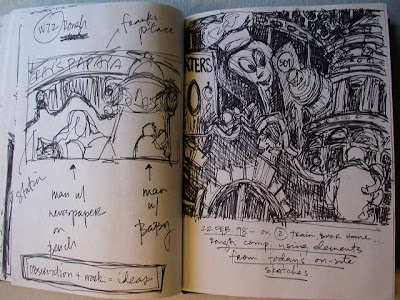 W72/Rough
frank's
place
GRAY'S PAPAYA
station
man w/
newspaper
on
bench
man
w/
observation + work = ideas
RTERS
501
22 FEB. 98 - on 2 train, back home...
rough comp using elements
from today's on-site
sketches